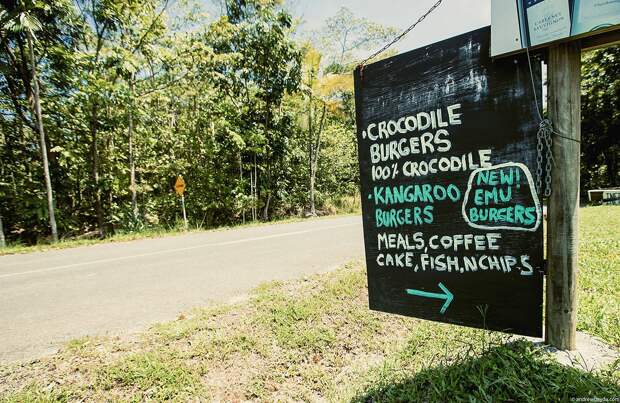 CABERNET
SAUVIGNON
•CROCODILE
BURGERS
100% CROCODILE
•KANGAROO
BURGERS
NEW!
EMU
BURGERS
MEALS, COFFEE
CAKE, FISH,N CHIPS